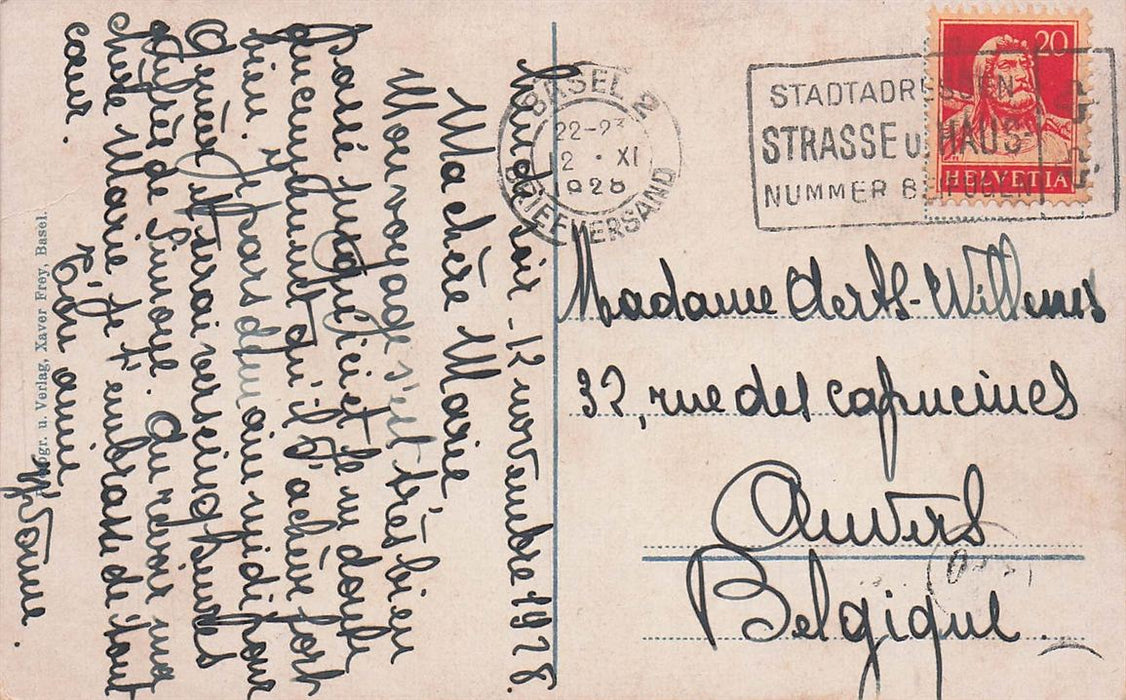 lundi soir - 12 novembre 1928.
Ma chère Marie,
Mon voyage s'est très bien
passé jusqu'ici et je ne doute
aucunement qu'il s'achève fort
bien. Je pars demain midi pour
Genève et serai vers cinq heures
auprès de Simone. Au revoir ma
chère Marie, je t'embrasse de tout
cœur.
Ton amie
Yvonne.
gr. u. Verlag, Xaver Frey, Basel.
BASEL 2
22-23
12 · XI
1928
BRIEFVERSAND
STADTADRESSEN
STRASSE u. HAUS-
NUMMER BEIFÜGEN
20
HELVETIA
Madame Aerts-Willems
32, rue des capucines
Anvers
Belgique